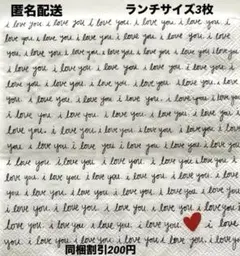 匿名配送 ランチサイズ3枚
i love you i love you i love you i love you i love you
love you. i love you. i love you. i love you. i love you
i love you. i love you. i love you. i love you. i love
you. i love you. i love you. i love you. i love you.
i love you. i love you. i love you. i love you. i love
love you. i love you. i love you. i love you. i love
i love you. i love you. i love you. i love you
love you. i love you. i love you. i love you. i love
you. i love you. i love you. i love you. i love you
i love you. i love you. i love you. i love you. i
love you. i love you. i love you. i love you. i love
you. i love you. i love you. i love you. i love
love you. i love you. i love you. i love you. i love
love you. i love you. i love you. i love
you. i love you. i love you. i love you
同梱割引200円